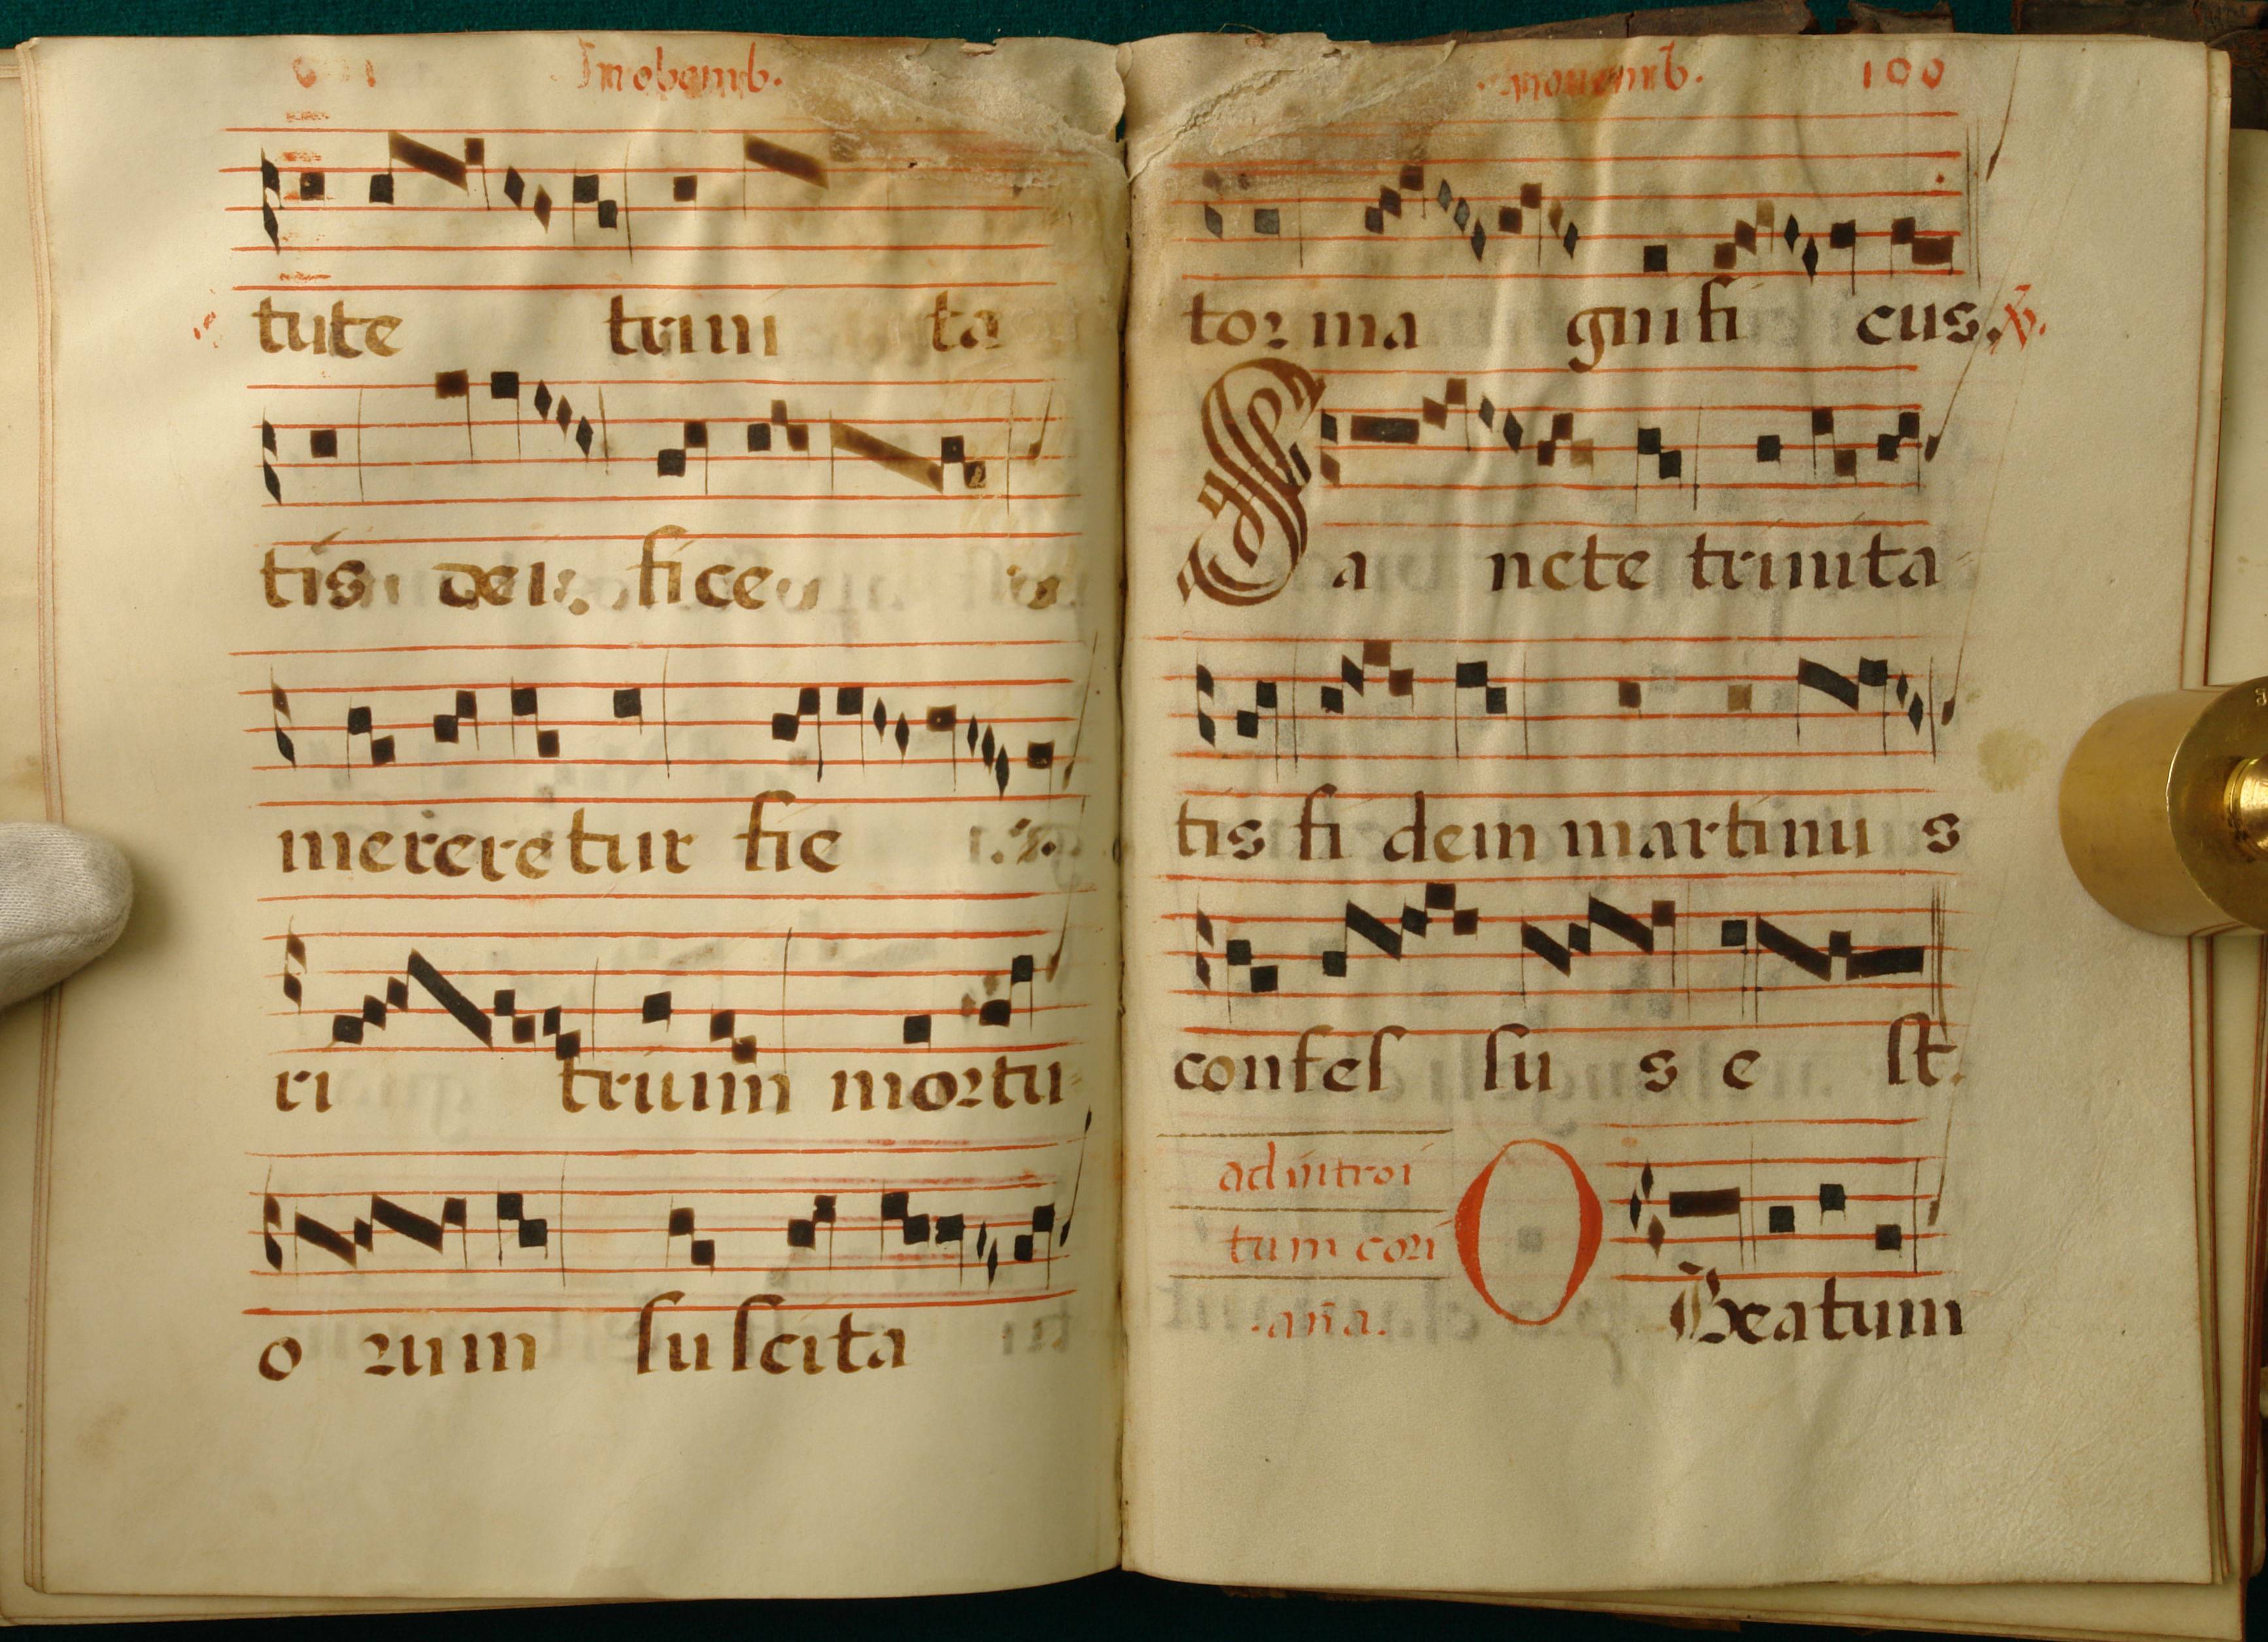 tute trini ta
tis dei fice
mereretur fie ri
ri trium mortu-
o rum suscita
100
tor ma gnifi cus. ℣.
Sa ncte trinita-
tis fi dem martinu s
confes su s e st.
ad introi
tum cori
.aña.
O Beatum